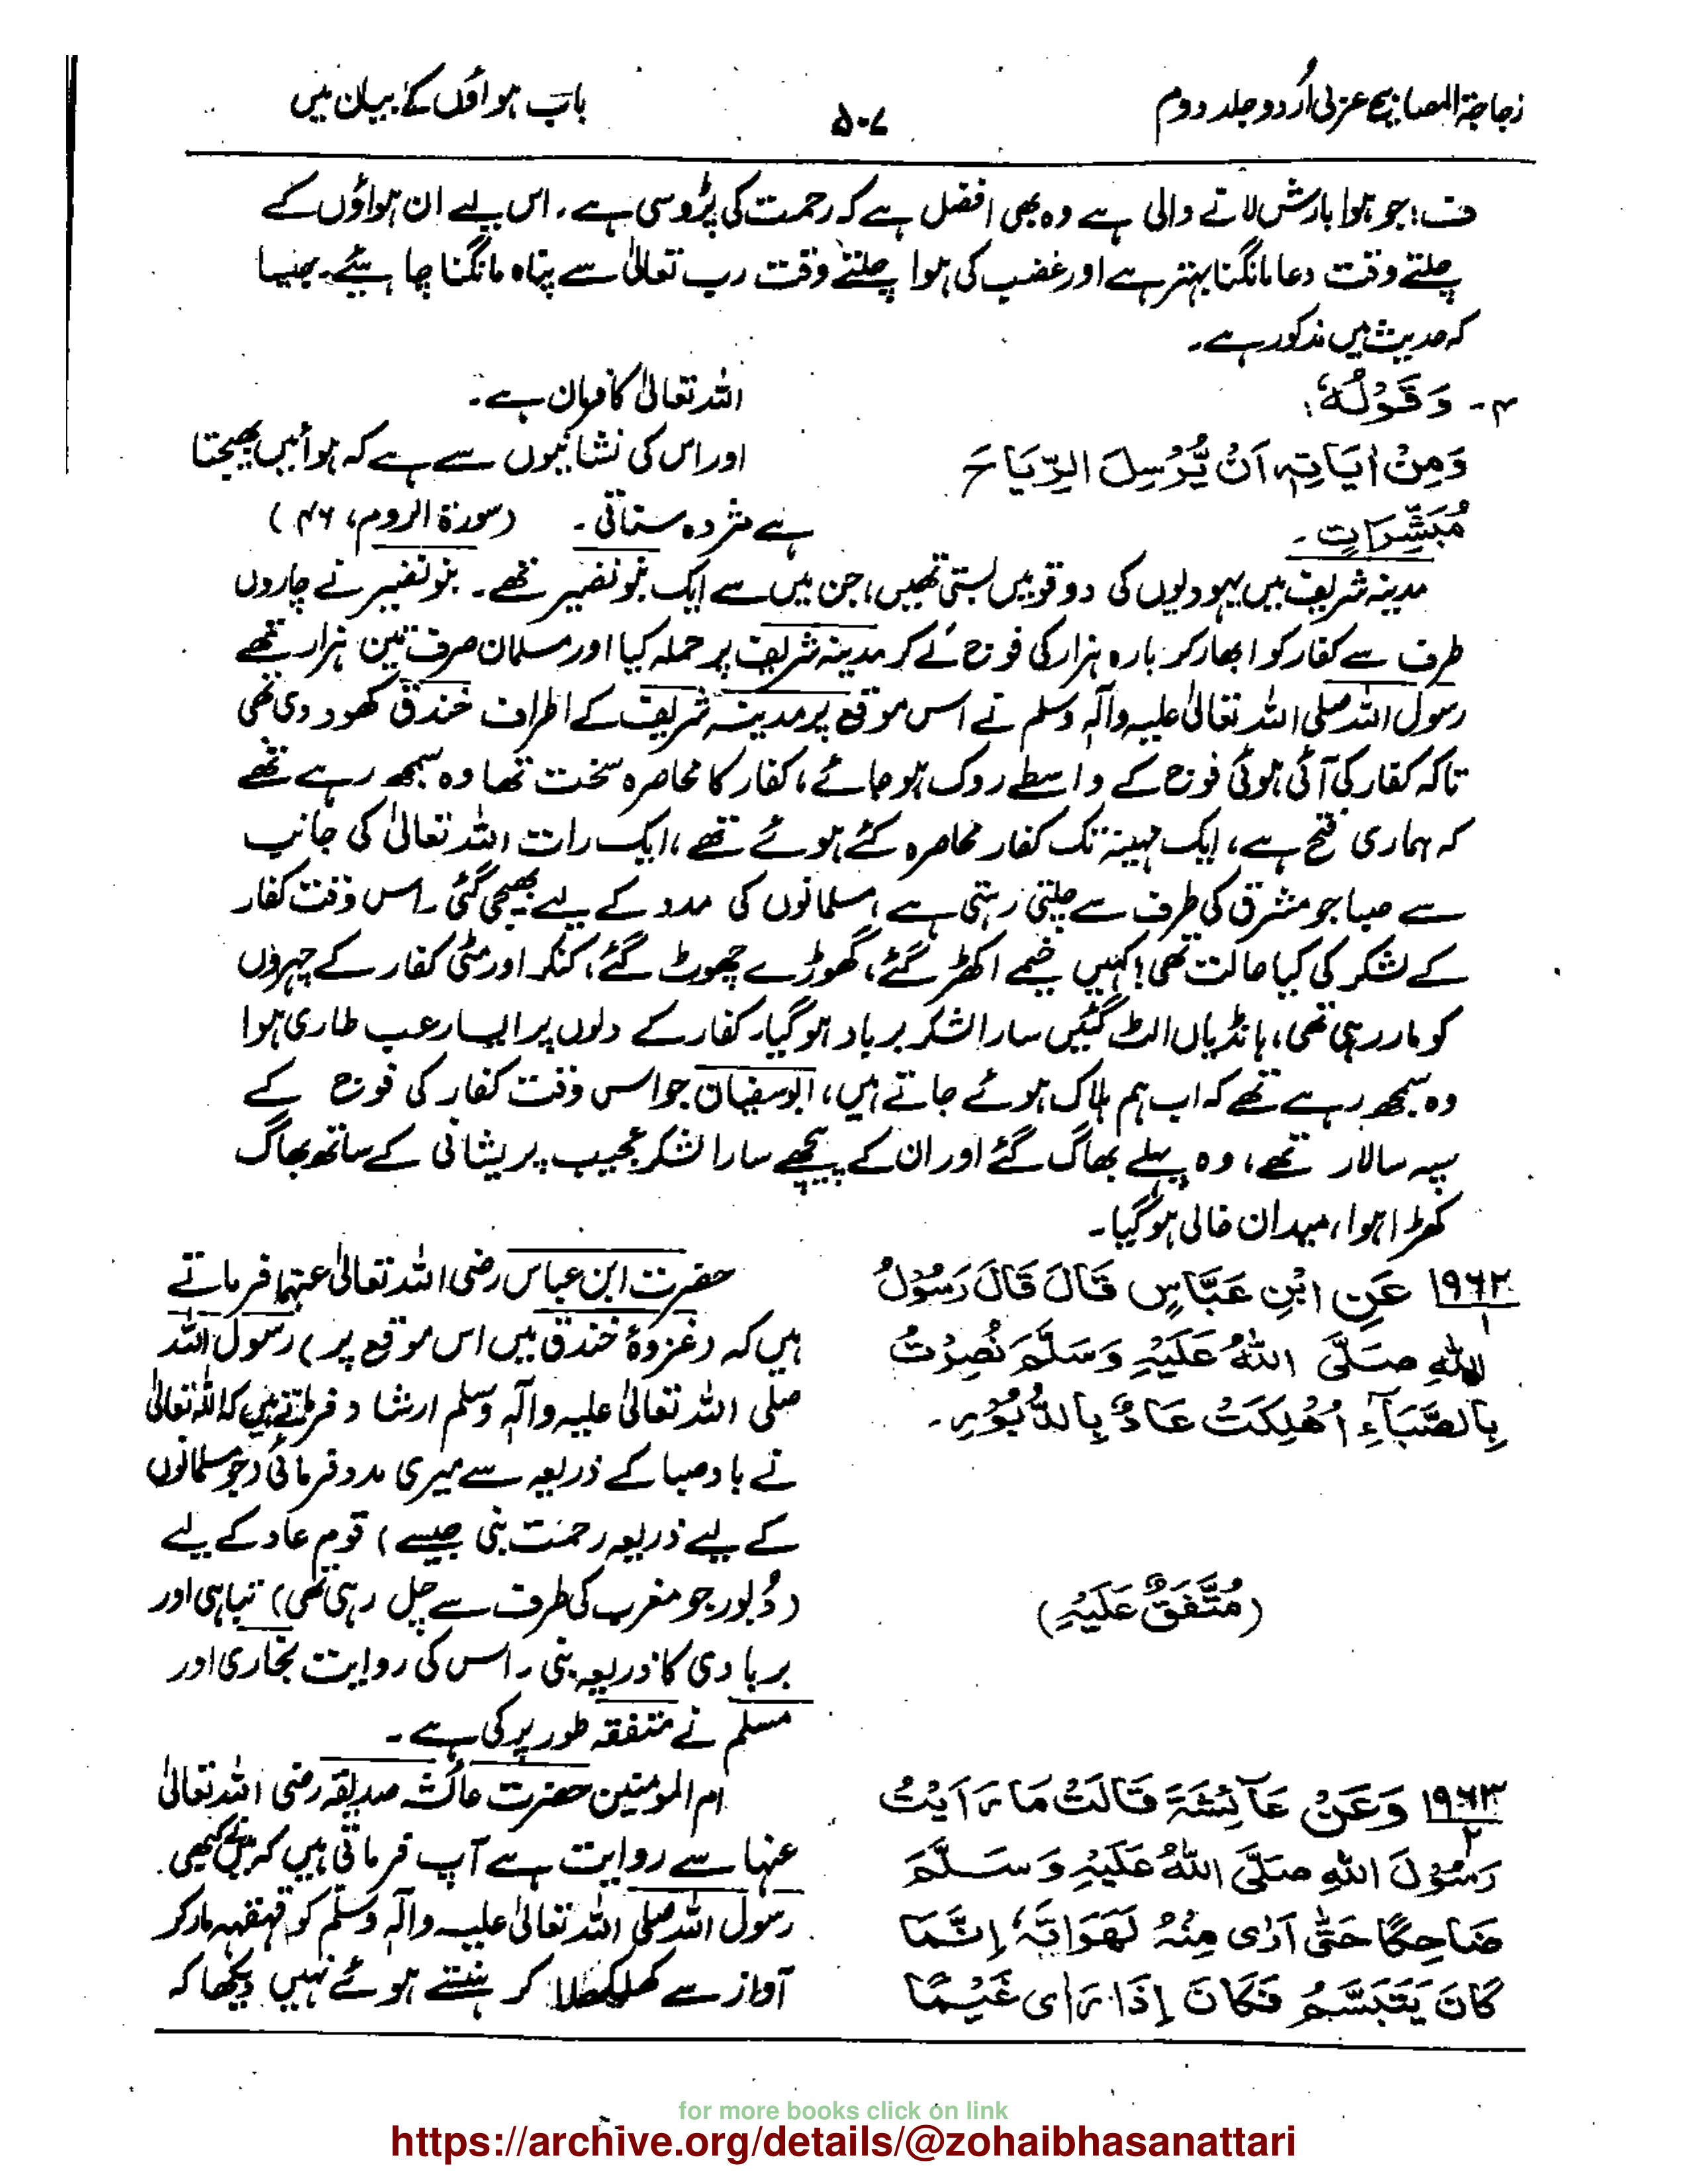 زجاجۃ المصابیح عربی اُردو جلد دوم
۵۰۷
باب ہواؤں کے بیان میں
ف؛ جو ہوا بارش لانے والی ہے وہ بھی افضل ہے کہ رحمت کی پڑوسی ہے۔ اس لیے ان ہواؤں کے
چلتے وقت دعا مانگنا بہتر ہے اور غضب کی ہوا چلتے وقت رب تعالیٰ سے پناہ مانگنا چاہیئے۔ جیسا
کہ حدیث میں مذکور ہے۔
۴- وَقَوْلُهٗ؛
وَمِنْ اٰيَاتِهٖ اَنْ يُّرْسِلَ الرِّيَاحَ
مُبَشِّرَاتٍ۔
اللہ تعالیٰ کا فرمان ہے۔
اور اس کی نشانیوں سے ہے کہ ہوائیں بھیجتا
ہے مژدہ سناتی۔ (سورۃ الروم، ۴۶)
مدینہ شریف میں یہودیوں کی دو قومیں بستی تھیں، جن میں سے ایک بنو نضیر تھے۔ بنو نضیر نے چاروں
طرف سے کفار کو ابھار کر بارہ ہزار کی فوج لے کر مدینہ شریف پر حملہ کیا اور مسلمان صرف تین ہزار تھے
رسول اللہ صلی اللہ تعالیٰ علیہ وآلہ وسلم نے اس موقع پر مدینہ شریف کے اطراف خندق کھود دی تھی
تاکہ کفار کی آئی ہوئی فوج کے واسطے روک ہو جائے، کفار کا محاصرہ سخت تھا وہ سمجھ رہے تھے
کہ ہماری فتح ہے، ایک مہینہ تک کفار محاصرہ کئے ہوئے تھے، ایک رات اللہ تعالیٰ کی جانب
سے صبا جو مشرق کی طرف سے چلتی رہتی ہے، مسلمانوں کی مدد کے لیے بھیجی گئی۔ اس وقت کفار
کے لشکر کی کیا حالت تھی! کہیں خیمے اکھڑ گئے، گھوڑے چھوٹ گئے، کنکر اور مٹی کفار کے چہروں
کو مار رہی تھی، ہانڈیاں الٹ گئیں سارا لشکر برباد ہو گیا۔ کفار کے دلوں پر ایسا رعب طاری ہوا
وہ سمجھ رہے تھے کہ اب ہم ہلاک ہوئے جاتے ہیں، ابوسفیان جو اس وقت کفار کی فوج کے
سپہ سالار تھے، وہ پہلے بھاگ گئے اور ان کے پیچھے سارا لشکر عجیب پریشانی کے ساتھ بھاگ
کھڑا ہوا، میدان خالی ہو گیا۔
۱۹۶۲/۱ عَنِ ابْنِ عَبَّاسٍ قَالَ قَالَ رَسُوْلُ
اللهِ صَلَّى اللهُ عَلَيْهِ وَسَلَّمَ نُصِرْتُ
بِالصَّبَآءِ اُهْلِكَتْ عَادٌ بِالدَّبُوْرِ۔
(مُتَّفَقٌ عَلَيْهِ)
حضرت ابن عباس رضی اللہ تعالیٰ عنہما فرماتے
ہیں کہ (غزوۂ خندق میں اس موقع پر) رسول اللہ
صلی اللہ تعالیٰ علیہ وآلہ وسلم ارشاد فرماتے ہیں کہ اللہ تعالیٰ
نے باد صبا کے ذریعہ سے میری مدد فرمائی (جو مسلمانوں
کے لیے ذریعہ رحمت بنی جیسے) قوم عاد کے لیے
(دُبور جو مغرب کی طرف سے چل رہی تھی) تباہی اور
بربادی کا ذریعہ بنی۔ اس کی روایت بخاری اور
مسلم نے متفقہ طور پر کی ہے۔
۱۹۶۳/۲ وَعَنْ عَآئِشَةَ قَالَتْ مَا رَاَيْتُ
رَسُوْلَ اللهِ صَلَّى اللهُ عَلَيْهِ وَسَلَّمَ
ضَاحِكًا حَتّٰى اَرٰى مِنْهُ لَهَوَاتِهٖ اِنَّمَا
كَانَ يَتَبَسَّمُ فَكَانَ اِذَا رَاٰى غَيْمًا
ام المومنین حضرت عائشہ صدیقہ رضی اللہ تعالیٰ
عنہا سے روایت ہے آپ فرماتی ہیں کہ میں نے کبھی
رسول اللہ صلی اللہ تعالیٰ علیہ وآلہ وسلم کو قہقہہ مار کر
آواز سے کھلکھلا کر ہنستے ہوئے نہیں دیکھا کہ
for more books click on link
https://archive.org/details/@zohaibhasanattari